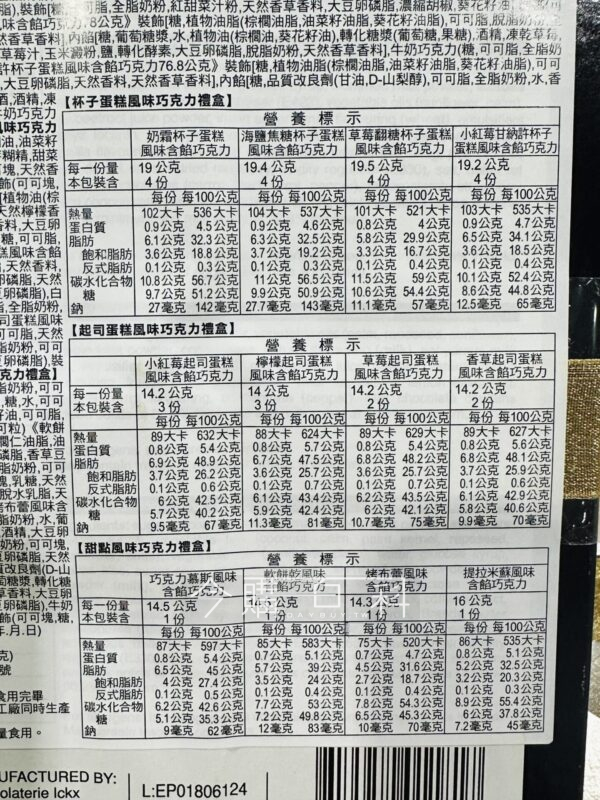 脂),裝飾(糖,可可脂,全脂奶粉,紅甜菜汁粉,天然香草香料,大豆卵磷脂,濃縮胡椒,葵花籽油
味含餡巧克力78公克》裝飾[糖,植物油脂(棕櫚油脂,油菜籽油脂,葵花籽油脂),可可脂,脫脂奶粉,全
天然香草香料]內餡(糖,葡萄糖漿,水,植物油(棕櫚油,葵花籽油),轉化糖漿(葡萄糖,果糖),酒精,凍乾草莓,
草莓汁,玉米澱粉,鹽,轉化酵素,大豆卵磷脂,脫脂奶粉,天然香草香料],牛奶巧克力(糖,可可脂,全脂奶
許杯子蛋糕風味含餡巧克力76.8公克》裝飾[糖,植物油脂(棕櫚油脂,油菜籽油脂,葵花籽油脂),可可
,大豆卵磷脂,天然香料,天然香草香料],內餡[糖,品質改良劑(甘油,D-山梨醇),可可脂,全脂奶粉,水,香
【杯子蛋糕風味巧克力禮盒】
營養標示
奶霜杯子蛋糕 海鹽焦糖杯子蛋糕 草莓翻糖杯子蛋糕 小紅莓甘納許杯子
風味含餡巧克力 風味含餡巧克力 風味含餡巧克力 蛋糕風味含餡巧克力
每一份量 19 公克 19.4 公克 19.5 公克 19.2 公克
本包裝含 4 份 4 份 4 份 4 份
每份 每100公克 每份 每100公克 每份 每100公克 每份 每100公克
熱量 102大卡 536大卡 104大卡 537大卡 101大卡 521大卡 103大卡 535大卡
蛋白質 0.9公克 4.5公克 0.9公克 4.6公克 0.8公克 4公克 0.9公克 4.7公克
脂肪 6.1公克 32.3公克 6.3公克 32.5公克 5.8公克 29.9公克 6.5公克 34.1公克
飽和脂肪 3.6公克 18.8公克 3.7公克 19.2公克 3.3公克 16.7公克 3.6公克 18.5公克
反式脂肪 0.1公克 0.3公克 0.1公克 0.3公克 0.1公克 0.4公克 0.1公克 0.4公克
碳水化合物 10.8公克 56.7公克 11公克 56.5公克 11.5公克 59公克 10.1公克 52.4公克
糖 9.7公克 51.2公克 9.9公克 50.9公克 10.6公克 54.4公克 8.6公克 44.8公克
鈉 27毫克 142毫克 27.7毫克 143毫克 11.1毫克 57毫克 12.5毫克 65毫克
【起司蛋糕風味巧克力禮盒】
營養標示
小紅莓起司蛋糕 檸檬起司蛋糕 草莓起司蛋糕 香草起司蛋糕
風味含餡巧克力 風味含餡巧克力 風味含餡巧克力 風味含餡巧克力
每一份量 14.2 公克 14 公克 14.2 公克 14.2 公克
本包裝含 3 份 3 份 2 份 2 份
每份 每100公克 每份 每100公克 每份 每100公克 每份 每100公克
熱量 89大卡 632大卡 88大卡 624大卡 89大卡 629大卡 89大卡 627大卡
蛋白質 0.8公克 5.4公克 0.8公克 5.7公克 0.8公克 5.4公克 0.8公克 5.6公克
脂肪 6.9公克 48.9公克 6.7公克 47.5公克 6.8公克 48.2公克 6.8公克 48.1公克
飽和脂肪 3.7公克 26.2公克 3.6公克 25.7公克 3.6公克 25.7公克 3.7公克 25.9公克
反式脂肪 0.1公克 0.6公克 0.1公克 0.7公克 0.1公克 0.7公克 0.1公克 0.6公克
碳水化合物 6公克 42.5公克 6.1公克 43.4公克 6.2公克 43.5公克 6.1公克 42.9公克
糖 5.7公克 40.2公克 5.9公克 42.4公克 6公克 42.1公克 5.8公克 40.6公克
鈉 9.5毫克 67毫克 11.3毫克 81毫克 10.7毫克 75毫克 9.9毫克 70毫克
【甜點風味巧克力禮盒】
營養標示
巧克力慕斯風味 軟餅乾風味 烤布蕾風味 提拉米蘇風味
含餡巧克力 含餡巧克力 含餡巧克力 含餡巧克力
每一份量 14.5 公克 公克 14.3 公克 16 公克
本包裝含 1份 1份 1份 1份
每份 每100公克 每份 每100公克 每份 每100公克 每份 每100公克
熱量 87大卡 597大卡 85大卡 583大卡 75大卡 520大卡 86大卡 535大卡
蛋白質 0.8公克 5.4公克 0.7公克 5.1公克 0.7公克 4.7公克 0.8公克 5.1公克
脂肪 6.5公克 45公克 5.7公克 39公克 4.5公克 31.6公克 5.2公克 32.5公克
飽和脂肪 4公克 27.4公克 3.5公克 24公克 2.7公克 18.7公克 3.2公克 20.3公克
反式脂肪 0.1公克 0.5公克 0.1公克 0.4公克 0.1公克 0.4公克 0.1公克 0.3公克
碳水化合物 6.2公克 42.6公克 7.7公克 53公克 7.8公克 54.3公克 8.9公克 55.4公克
糖 5.1公克 35.3公克 7.2公克 49.8公克 6.5公克 45.3公克 6公克 37.8公克
鈉 9毫克 62毫克 12毫克 83毫克 10毫克 70毫克 7.2毫克 45毫克
食用完畢
工廠同時生產
量食用。
UFACTURED BY:
olaterie Ickx
L:EP01806124